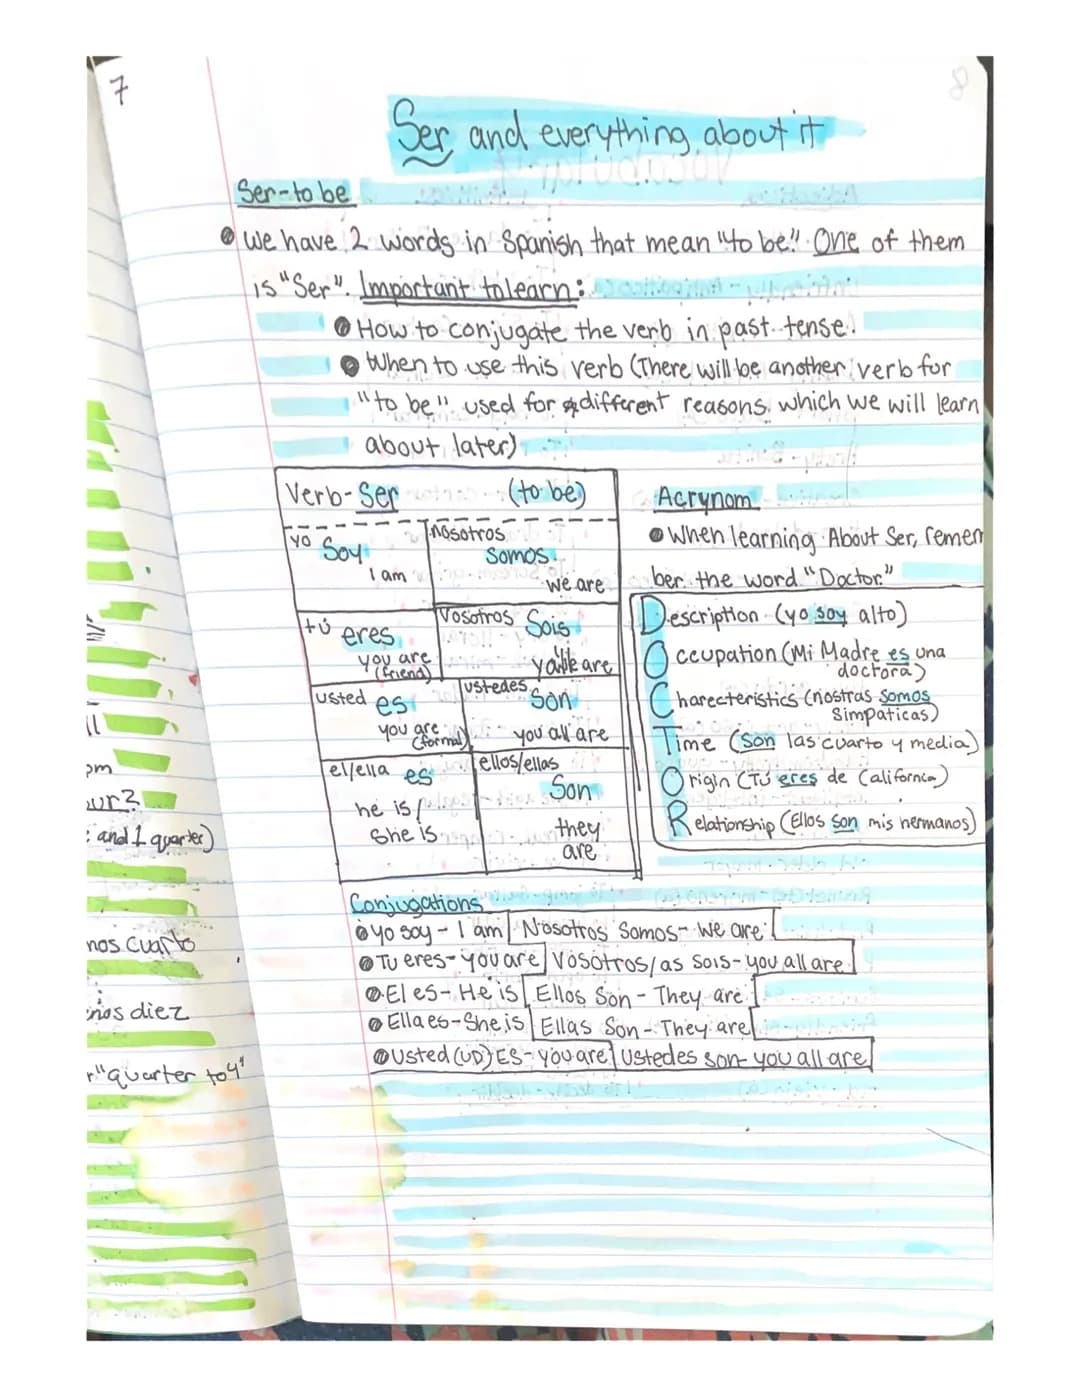 7
8
Ser and everything about it
Ser-to be
we have 2 words in Spanish that mean "to be." One of them
is "Ser". Important to learn:
How to conjugate the verb in past tense.
When to use this verb (There will be another verb for
"to be" used for different reasons which we will learn
about later)
Verb-Ser (to be)
yo Soy
I am
nosotros
Somos
we are
tú eres
you are
(friend)
Vosotros Sois
are
usted es
you are
(formal)
ustedes
Son
you all are
el/ella es
he is/
She is
ellos/ellas
Son
they
are
Acrynom
When learning About Ser, remem
ber the word "Doctor."
Description (yo soy alto)
Occupation (Mi Madre es una
doctora)
Charecteristics (nostras somos
Simpaticas)
Time (Son las cuarto y media)
Origin (Tú eres de California)
Relationship (Ellos son mis hermanos)
Conjugations
yo soy - I am Nosotros Somos- we are
Tu eres- you are Vosotros/as sois- you all are
El es- He is Ellos Son - They are
Ella es-She is Ellas Son - They are
Usted (UD) ES- you are Ustedes son- you all are
pm
ur?
and 1 quarter)
nos cuarto
nos diez
"quarter to 4"